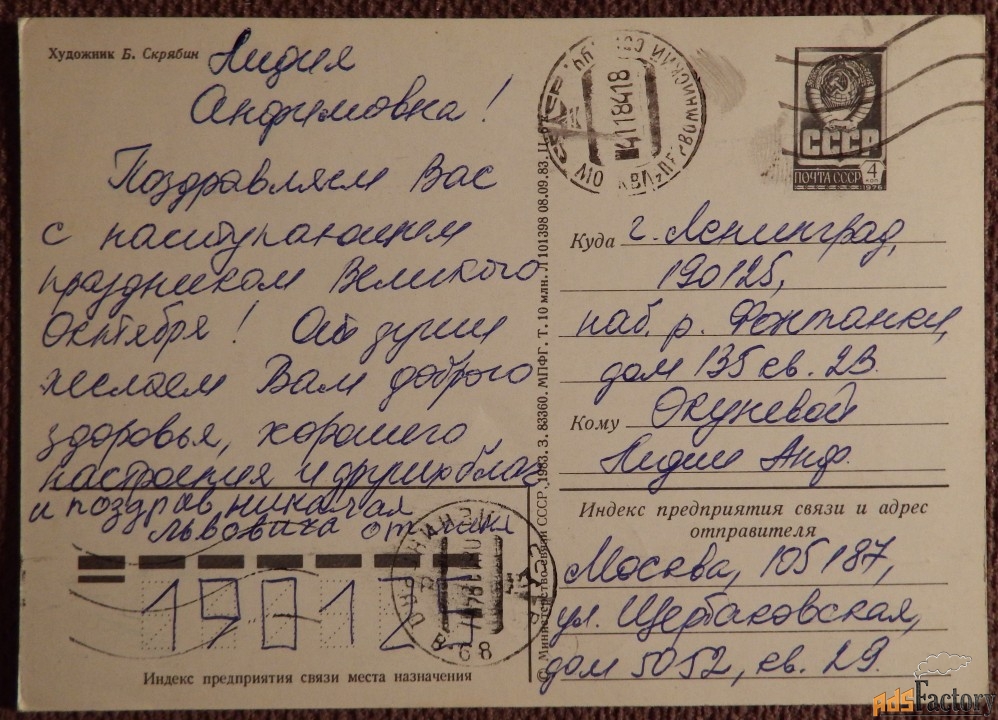 Художник Б. Скрябин
Лидия
Анфимовна!
Поздравляем Вас
с наступающим
праздником Великого
Октября! От души
желаем Вам доброго
здоровья, хорошего
настроения и других благ
и поздрав. Николая
Львовича от меня
Индекс предприятия связи места назначения
© Министерство связи СССР, 1983. З. 83360. МПФГ. Т. 10 млн. Л 101398 08.09.83.
СССР
ПОЧТА СССР 4 КОП
1976
Куда г. Ленинград,
190125,
наб. р. Фонтанки,
дом 135 кв. 23.
Кому Окуневой
Лидии Анф.
Индекс предприятия связи и адрес
отправителя
Москва, 105187,
ул. Щербаковская,
дом 50/52, кв. 29.
AdsFactory